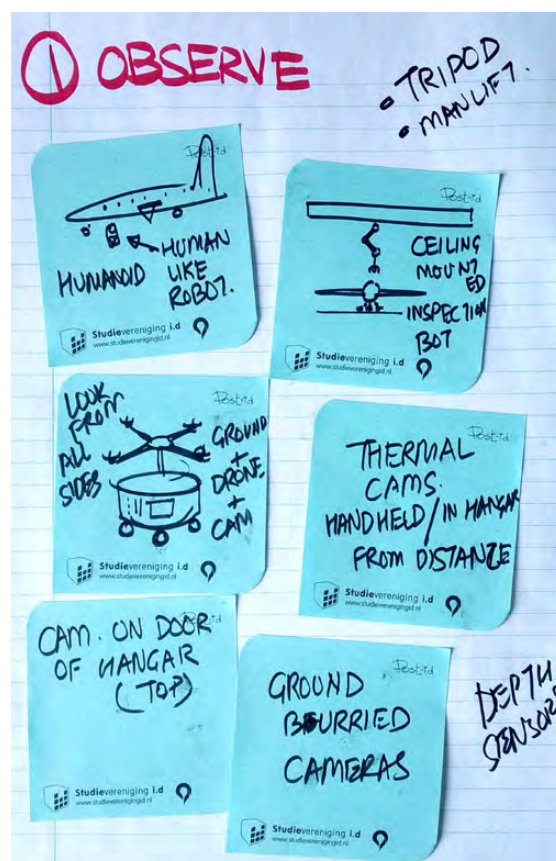 ① OBSERVE
• TRIPOD
• MANLIFT.
Post-id
HUMANOID
HUMAN
LIKE
ROBOT.
Studievereniging i.d
www.studieverenigingid.nl
Post-id
CEILING
MOUNT
ED
INSPECTION
BOT
Studievereniging i.d
www.studieverenigingid.nl
Post-id
LOOK
FROM
ALL
SIDES
GROUND
+
DRONE
+
CAM
Studievereniging i.d
www.studieverenigingid.nl
Post-id
THERMAL
CAMS.
HANDHELD/IN HANGAR
FROM DISTANZE
Studievereniging i.d
www.studieverenigingid.nl
Post-id
CAM. ON DOOR
OF HANGAR
(TOP)
Studievereniging i.d
www.studieverenigingid.nl
Post-id
GROUND
BURRIED
CAMERAS
Studievereniging i.d
www.studieverenigingid.nl
DEPTH
SENSOR